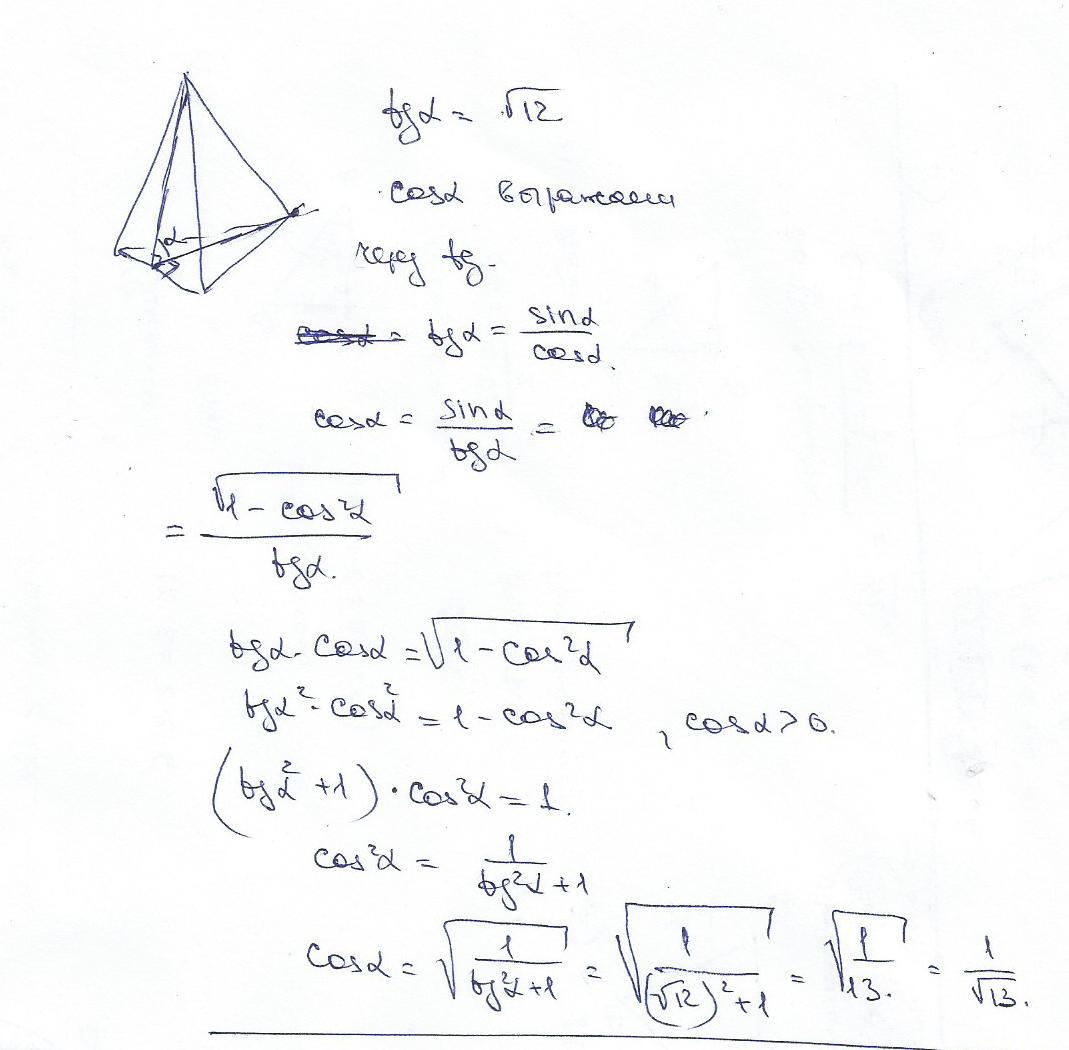 tgα = √12
cosα выражаем
через tg.
α
tgα = sinα/cosα.
cosα = sinα/tgα =
= √(1 - cos²α)/tgα.
tgα · cosα = √(1 - cos²α)
tgα² · cosα² = 1 - cos²α , cosα > 0.
(tgα² + 1) · cos²α = 1.
cos²α = 1/(tg²α + 1)
cosα = √(1/(tg²α + 1)) = √(1/((√12)² + 1)) = √(1/13.) = 1/√13.